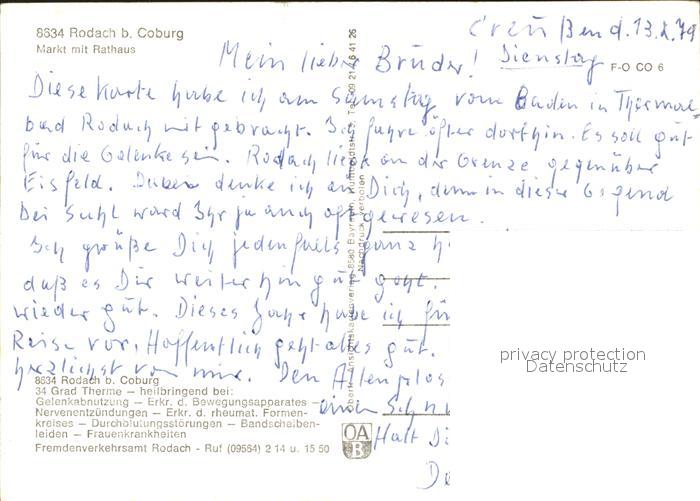 8634 Rodach b. Coburg
Markt mit Rathaus
Creußen d. 13.2.79
Dienstag
F-O CO 6
Mein lieber Bruder!
Diese Karte habe ich am Samstag vom Baden in Thermal=
bad Rodach mitgebracht. Ich fahre öfter dorthin. Es soll gut
für die Gelenke sein. Rodach liegt an der Grenze gegenüber
Eisfeld. Dabei denke ich an Dich, denn in dieser Gegend
bei Suhl ward Ihr ja auch oft gewesen.
Ich grüße Dich jedenfalls ganz h
daß es Dir weiterhin gut geht.
wieder gut. Dieses Jahr habe ich für
Reise vor. Hoffentlich geht alles gut.
herzlichst von mir. Den
einen
Halt Di
De
8634 Rodach b. Coburg
34 Grad Therme – heilbringend bei:
Gelenkabnutzung – Erkr. d. Bewegungsapparates –
Nervenentzündungen – Erkr. d. rheumat. Formen-
kreises – Durchblutungsstörungen – Bandscheiben-
leiden – Frauenkrankheiten
Fremdenverkehrsamt Rodach - Ruf (09564) 2 14 u. 15 50
OA
B
Nachdruck verboten
privacy protection
Datenschutz